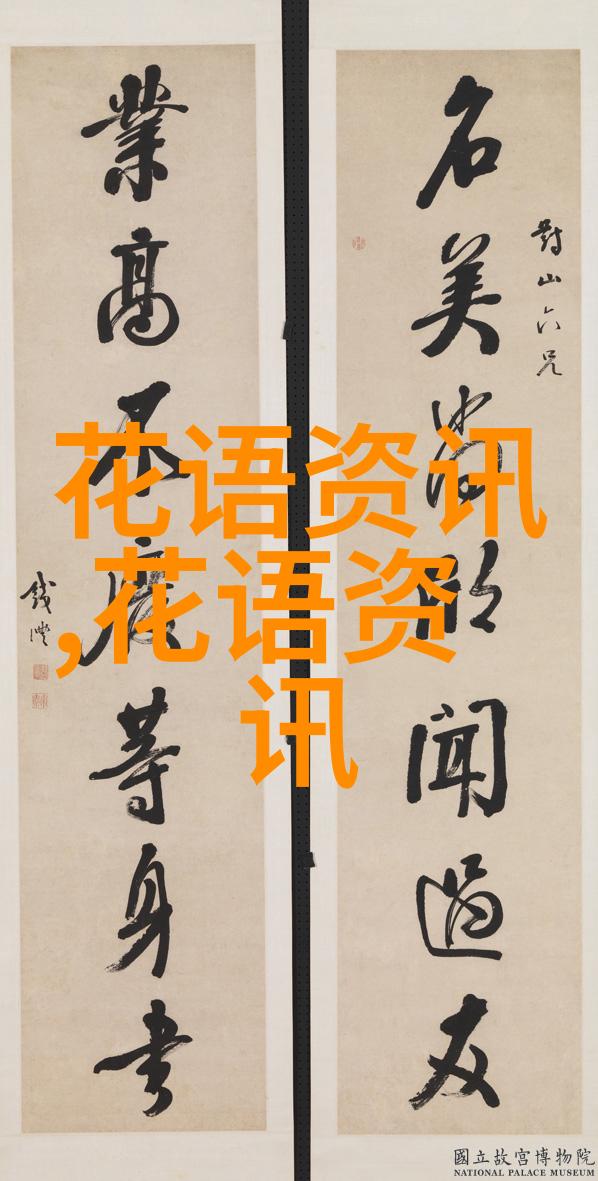 對山六兄
名美尚聞過友
業高不廢等身書
錢灃
花语资讯
,花语资
讯
國立故宮博物院
NATIONAL PALACE MUSEUM